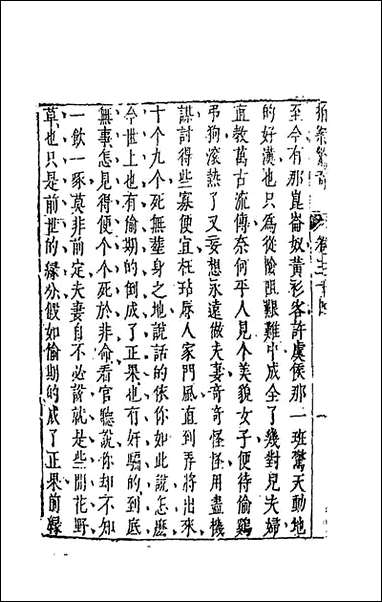 拍案驚奇
至今有那崑崙奴黃衫客許虞候那一班驚天動地
的好漢也只為從險阻艱難中成全了幾對兒夫婦
直教萬古流傳奈何平人見个美貌女子便待偷鷄
弔狗滾熱了又妄想永遠做夫妻奇奇怪怪用盡機
謀討得些寡便宜枉玷辱人家門風直到弄將出來
十个九个死無塟身之地說話的依你如此說怎麽
今世上也有偷期的倒成了正果也有奸騙的到底
無事怎見得便个个死於非命看官聽說你却不知
一飲一啄莫非前定夫妻自不必說就是些閒花野
草也只是前世的緣分假如偷期的成了正果前緣